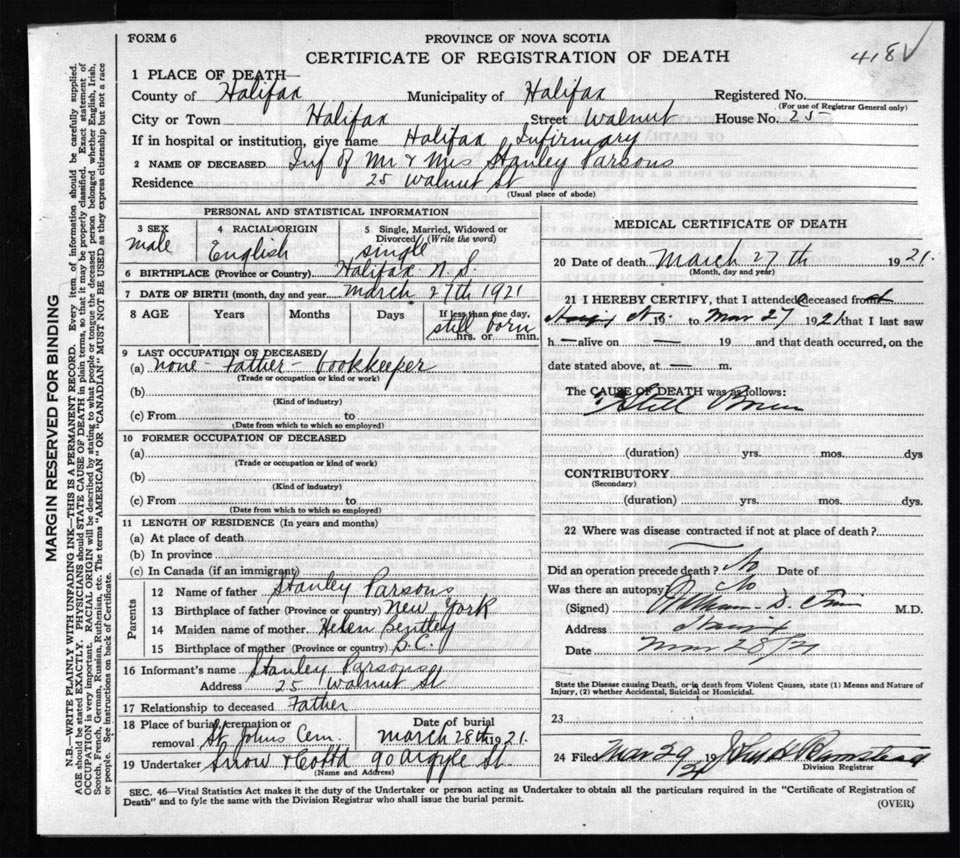 FORM 6
PROVINCE OF NOVA SCOTIA
CERTIFICATE OF REGISTRATION OF DEATH
418
1 PLACE OF DEATH—
County of Halifax Municipality of Halifax Registered No.
(For use of Registrar General only)
City or Town Halifax Street Walnut House No. 25
If in hospital or institution, give name Halifax Infirmary
2 NAME OF DECEASED Inf of Mr & Mrs Stanley Parsons
Residence 25 Walnut St
(Usual place of abode)
PERSONAL AND STATISTICAL INFORMATION
3 SEX
male
4 RACIAL ORIGIN
English
5 Single, Married, Widowed or Divorced (Write the word)
single
6 BIRTHPLACE (Province or Country) Halifax N.S.
7 DATE OF BIRTH (month, day and year) March 27th 1921
8 AGE Years Months Days If less than one day,
still born
hrs. or min.
9 LAST OCCUPATION OF DECEASED
(a) none - Father - bookkeeper
(Trade or occupation or kind of work)
(b)
(Kind of industry)
(c) From to
(Date from which to which so employed)
10 FORMER OCCUPATION OF DECEASED
(a)
(Trade or occupation or kind of work)
(b)
(Kind of industry)
(c) From to
(Date from which to which so employed)
11 LENGTH OF RESIDENCE (In years and months)
(a) At place of death
(b) In province
(c) In Canada (if an immigrant)
Parents
12 Name of father Stanley Parsons
13 Birthplace of father (Province or country) New York
14 Maiden name of mother. Helen Bentley
15 Birthplace of mother (Province or country)
16 Informant's name Stanley Parsons
Address 25 Walnut St
17 Relationship to deceased Father
18 Place of burial, cremation or removal St Johns Cem.
Date of burial
March 28th 1921.
19 Undertaker Snow & 90 Argyle St.
(Name and Address)
MEDICAL CERTIFICATE OF DEATH
20 Date of death March 27th 1921.
(Month, day and year)
21 I HEREBY CERTIFY, that I attended deceased from
to Mar 27 1921 that I last saw
h— alive on — 19 and that death occurred, on the
date stated above, at — m.
The CAUSE OF DEATH was as follows:
Still Born
(duration) yrs. mos. dys
CONTRIBUTORY.
(Secondary)
(duration) yrs. mos. dys.
22 Where was disease contracted if not at place of death?
Did an operation precede death? No Date of
Was there an autopsy No
(Signed) William D. M.D.
Address
Date Mar 28/21
State the Disease causing Death, or in death from Violent Causes, state (1) Means and Nature of
Injury, (2) whether Accidental, Suicidal or Homicidal.
23
24 Filed Mar 29 19 21 John H
Division Registrar
SEC. 46—Vital Statistics Act makes it the duty of the Undertaker or person acting as Undertaker to obtain all the particulars required in the "Certificate of Registration of
Death" and to fyle the same with the Division Registrar who shall issue the burial permit.
(OVER)
MARGIN RESERVED FOR BINDING
N.B.—WRITE PLAINLY WITH UNFADING INK—THIS IS A PERMANENT RECORD. Every item of information should be carefully supplied.
AGE should be stated EXACTLY. PHYSICIANS should STATE CAUSE OF DEATH in plain terms, so that it may be properly classified. Exact statement of
OCCUPATION is very important. RACIAL ORIGIN will be described by stating to what people or tongue the deceased person belonged whether English, Irish,
Scotch, French, German, Russian, Ruthenian, etc. The terms "AMERICAN" OR "CANADIAN" MUST NOT BE USED as they express citizenship but not a race
or people. See instructions on back of Certificate.